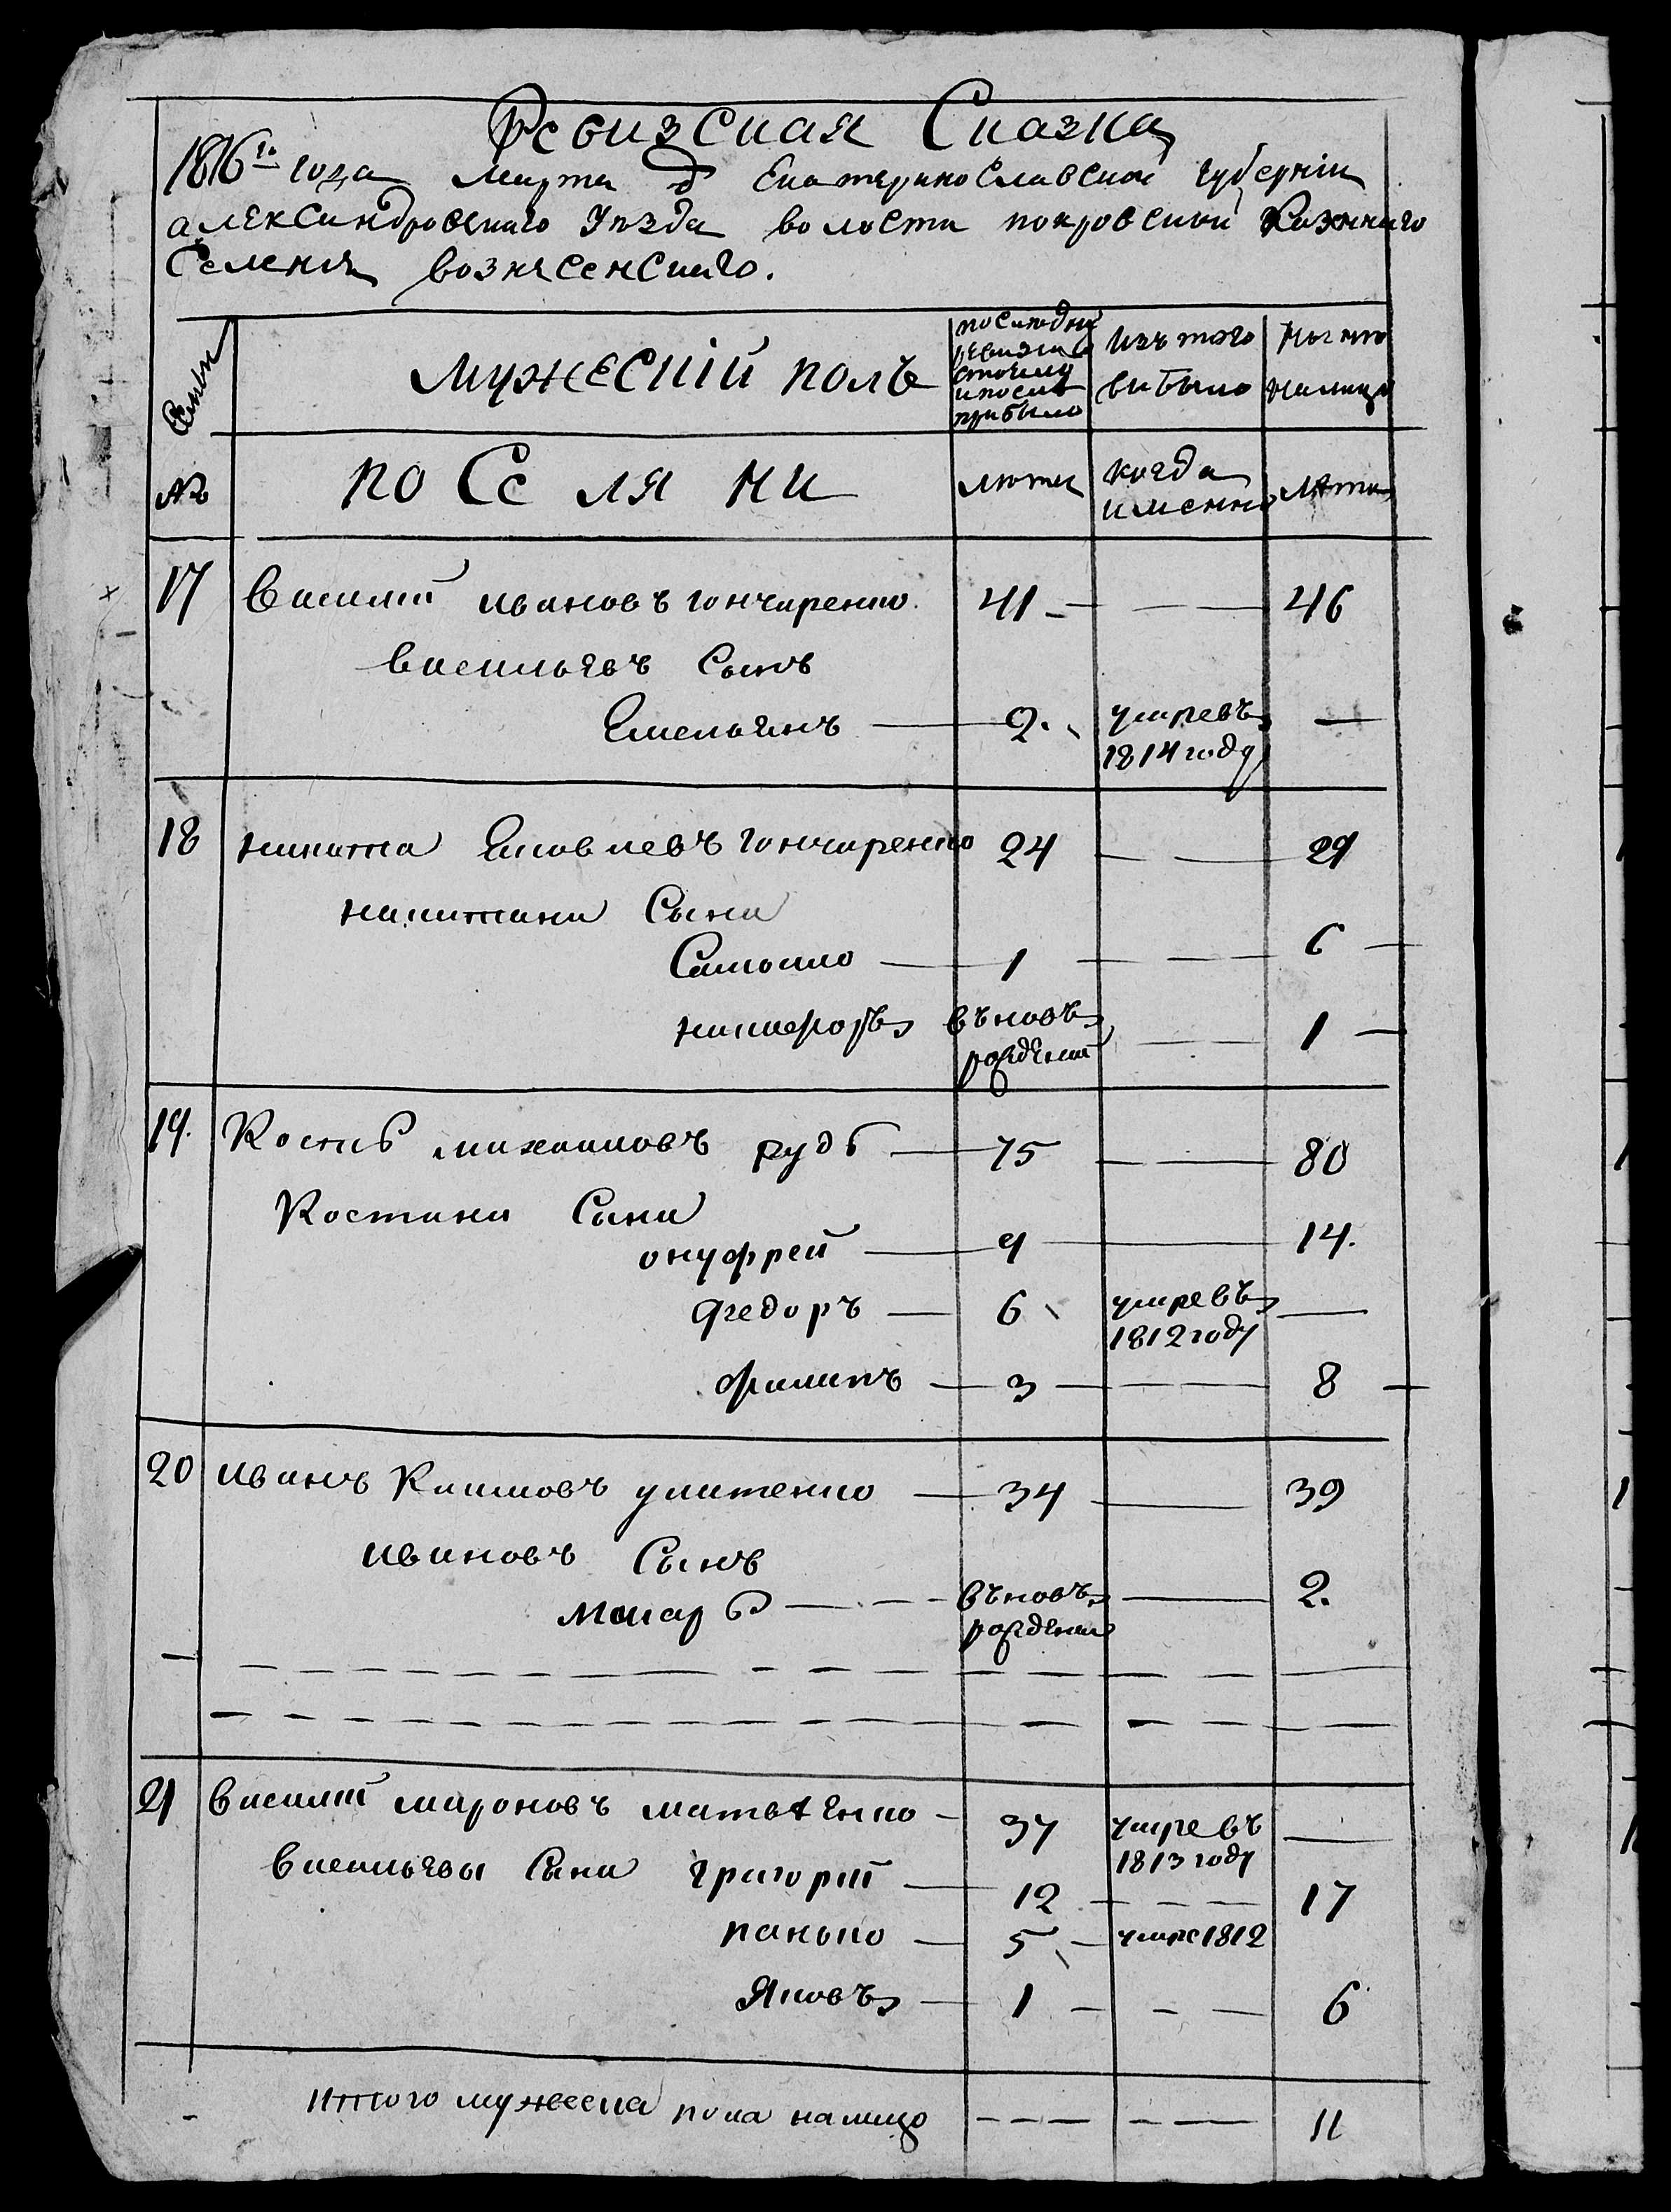 Ревизская Сказка
1816го года марта д Екатеринославской губерніи
александровскаго Уезда волости покровской Казеннаго
Селенія вознесенскаго.
Семьи мужескій полъ последней ревизіи состояло и после прибыло Изъ того выбыло Ныне на лицо
№ поселяни лета когда именно лета
17 Василій ивановъ гончаренко. 41 — — 46
васильевъ Сынъ
Емельянъ — 2. умре въ 1814 году —
18 никита Яковлевъ гончаренко 24 — — 29
никитини Сыни
Самойло — 1 — — 6
никифоръ въновь рожденый — 1
19. Костя михаиловъ рудь — 75 — — 80
Костини Сыни
онуфрей — 9 — 14.
федоръ — 6 умре въ 1812 году —
филипъ — 3 — — 8
20 иванъ Климовъ улитенко — 34 — 39
ивановъ Сынъ
макаръ — — въновь рожденый — 2.
21 василій мироновъ матвеенко — 37 умре въ 1813 году —
васильевы Сыни григорій — 12 — — 17
панько — 5 — умре 1812
Яковъ — 1 — — 6
итого мужеска пола налицо — — 11